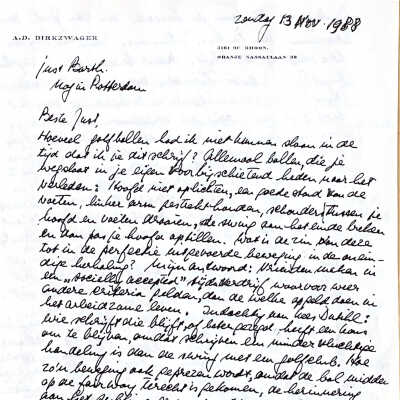 zondag 13 Nov. 1988
A.D. DIRKZWAGER
3161 GC RHOON.
ORANJE NASSAULAAN 28
Just Barth.
Rotterdam
Beste Just,
Hoeveel golfballen had ik niet kunnen slaan in de
tijd dat ik je dit schrijf? Allemaal ballen, die je
wegslaat in je eigen voorbijschietend heden, naar het
verleden: Hoofd niet oplichten, een goede stand van de
voeten, linker arm gestrekt houden, schouders je
hoofd en voeten draaien, de swing aan het einde breken
en dan pas je hoofd optillen. Wat is de zin van deze
tot in de perfectie uitgevoerde beweging in de onein-
dige herhaling? Mijn antwoord: Vrienden maken in
een "socially accepted" tijdverdrijf waarvoor weer
andere criteria gelden, dan de welke opgeld doen in
het arbeidzame leven. Indachtig van Dahl:
Wie schrijft die blijft, of beter gezegd, heeft een kans
om te blijven, omdat schrijven een minder vluchtige
handeling is dan de swing met een golfclub. Hoe
zo'n beweging ook geprezen wordt, omdat de bal midden
op de fairway terecht is gekomen, de herinnering
aan het